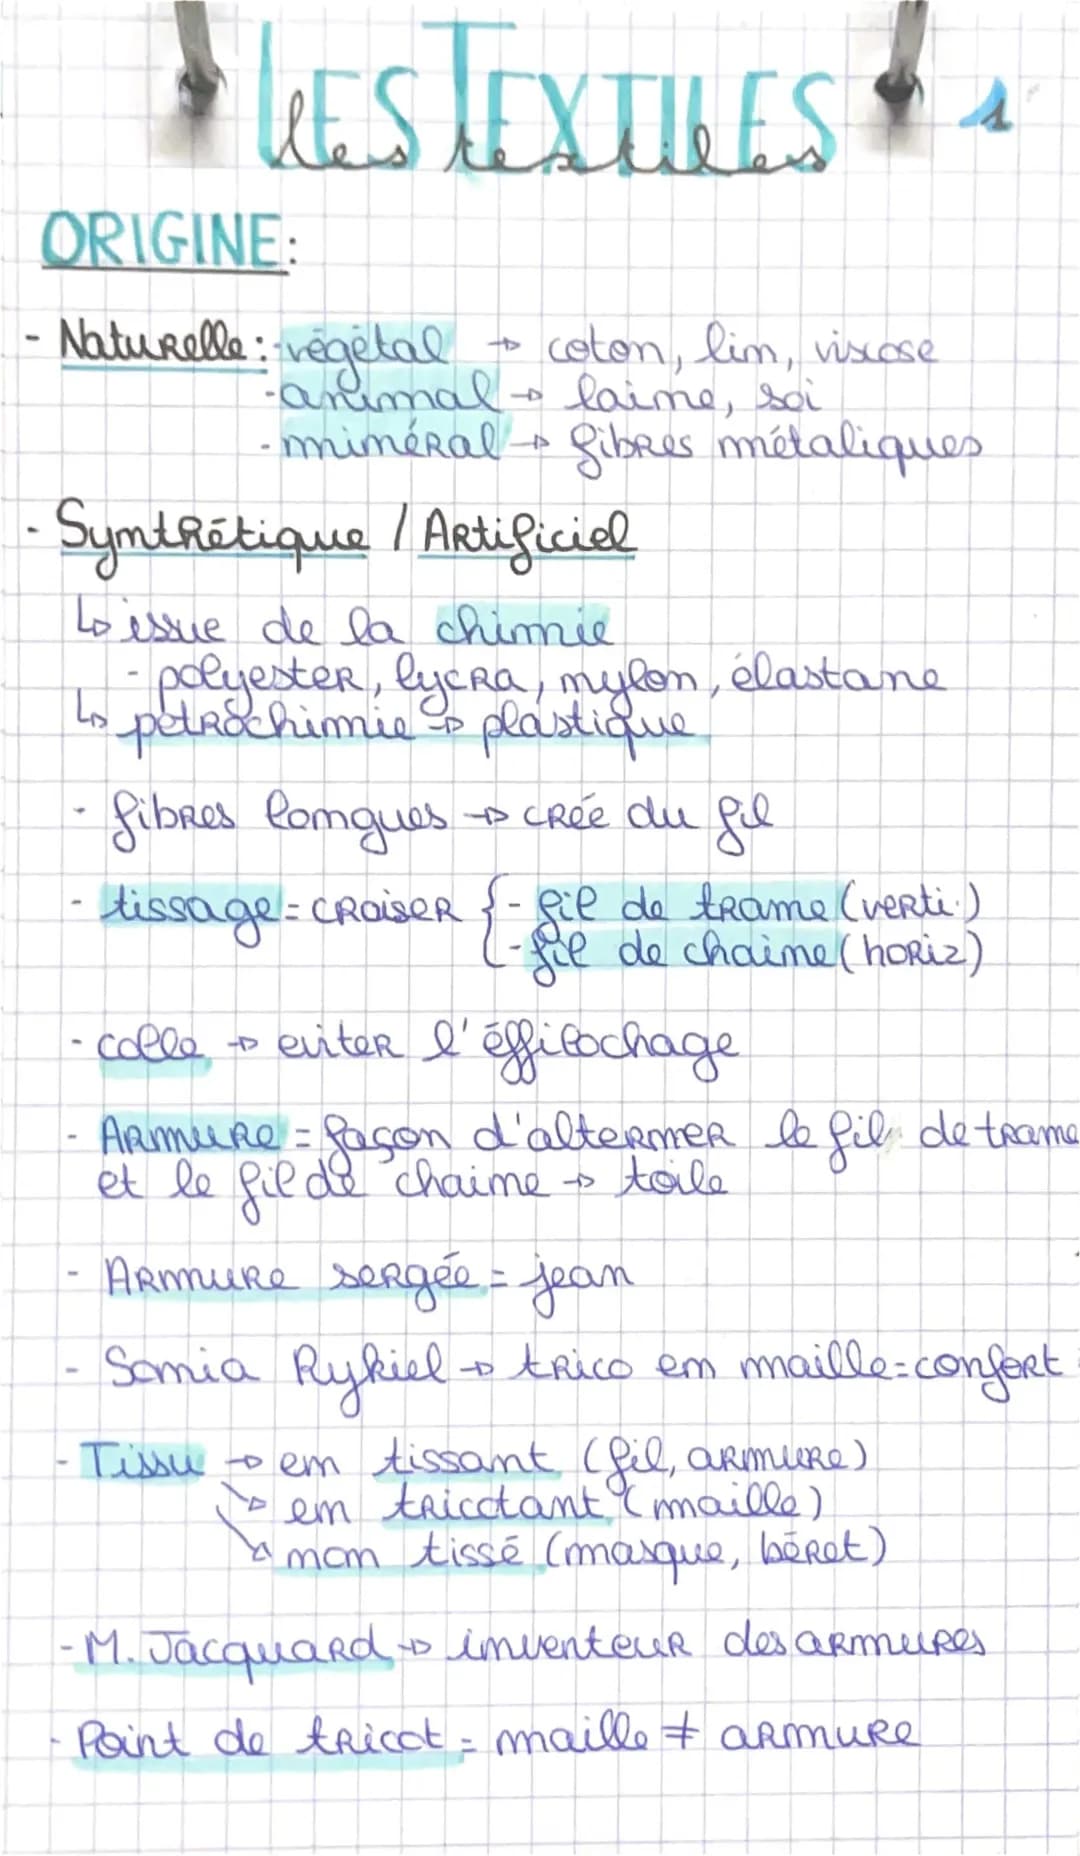 LES TEXTILES 1
les textiles
ORIGINE:
- Naturelle: - végétal → coton, lin, viscose
- animal → laine, soi
- minéral → fibres métaliques
- Synthrétique / Artificiel
↳ issue de la chimie
- polyester, lycra, nylon, élastane
↳ pétrochimie → plastique
- fibres longues → crée du fil
- tissage = croiser { - fil de trame (verti.)
- fil de chaine (horiz)
- colle → eviter l'éffilochage
- Armure = façon d'alterner le fil de trame
et le fil de chaine → toile
- Armure sergée = jean
- Sonia Rykiel → trico en maille = confort
- Tissu → en tissant (fil, armure)
↘ en tricotant (maille)
↘ non tissé (masque, béret)
- M. Jacquard → inventeur des armures
- Point de tricot = maille ≠ armure